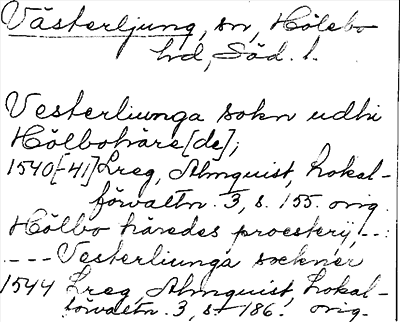 Västerljung, sn, Hölebo
hd, Söd. l.
Vesterliunga sokn udhi
Hölbohäre[de];
1540[-41] Lreg, Almquist, Lokal-
förvaltn. 3, s. 155. orig.
Hölbo häredes proesterij --:
---- Vesterliunga sockner
1544 Lreg, Almquist, Lokal-
förvaltn. 3, s. 186. orig.